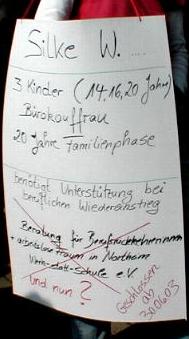 Silke W. ....
3 Kinder (14, 16, 20 Jahre)
Bürokauffrau
20 Jahre Familienphase
benötigt Unterstützung bei
beruflichen Wiedereinstieg
Beratung für Berufsrückkehrerinnen
+ arbeitslose Frauen in Northeim
Werk-statt-Schule e.V.
Und nun ?
Geschlossen
am
30.06.03